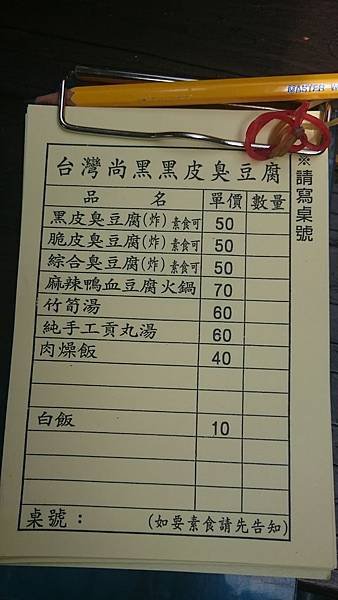 MASTER
台灣尚黑黑皮臭豆腐
※請寫桌號
品名 單價 數量
黑皮臭豆腐(炸)素食可 50
脆皮臭豆腐(炸)素食可 50
綜合臭豆腐(炸)素食可 50
麻辣鴨血豆腐火鍋 70
竹筍湯 60
純手工貢丸湯 60
肉燥飯 40
白飯 10
桌號： (如要素食請先告知)